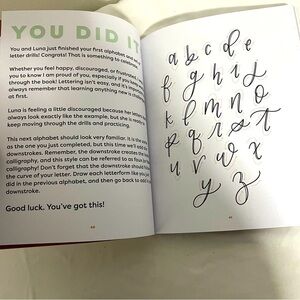 YOU DID IT
You and Luna just finished your first alphabet and
letter drills! Congrats! That is something to
Whether you feel happy, discouraged, or frustrated,
you to know I am proud of you, especially if you
through the book! Lettering isn't easy, and it's important
always remember that learning anything new is
at first.
Luna is feeling a little discouraged because her letters
always look exactly like the example, but she is
keep moving through the drills and practicing.
This next alphabet should look very familiar. It is the
as the one you just completed, but this time we'll add
downstrokes. Remember, the downstroke creates the
calligraphy, and this style can be referred to as
calligraphy! Don't forget that the downstroke should
the curve of your letter. Draw each letterform like you
did in the previous alphabet, and then go back to add
downstroke.
Good luck. You've got this!
a b c d e
f g h i j
k l m n o
p q r s t
u v w x
y z